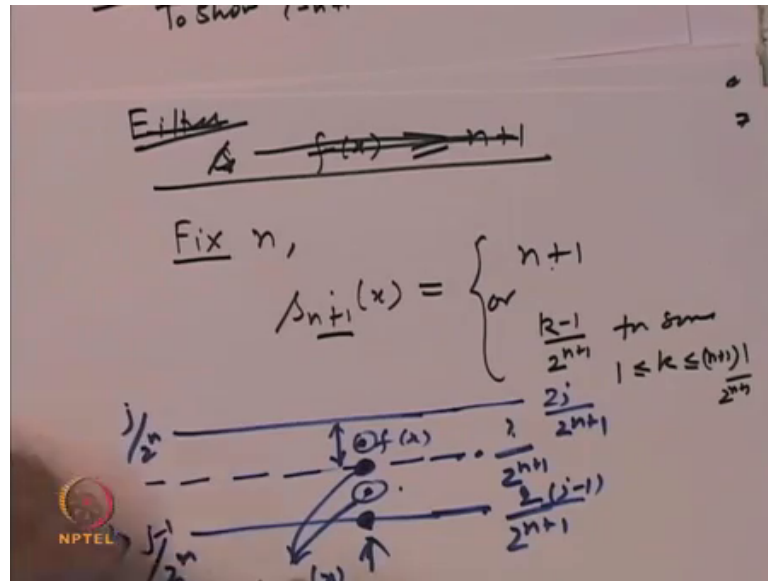 To show
Either
s f(x) = n+1
Fix n,
s_{n+1}(x) = { n+1
or
\frac{k-1}{2^{n+1}} for some
1 ≤ k ≤ (n+1)
2^{n+1}
j/2^n \frac{2j}{2^{n+1}}
f(x) \frac{?}{2^{n+1}}
\frac{j-1}{2^n} \frac{2(j-1)}{2^{n+1}}
(x)
NPTEL